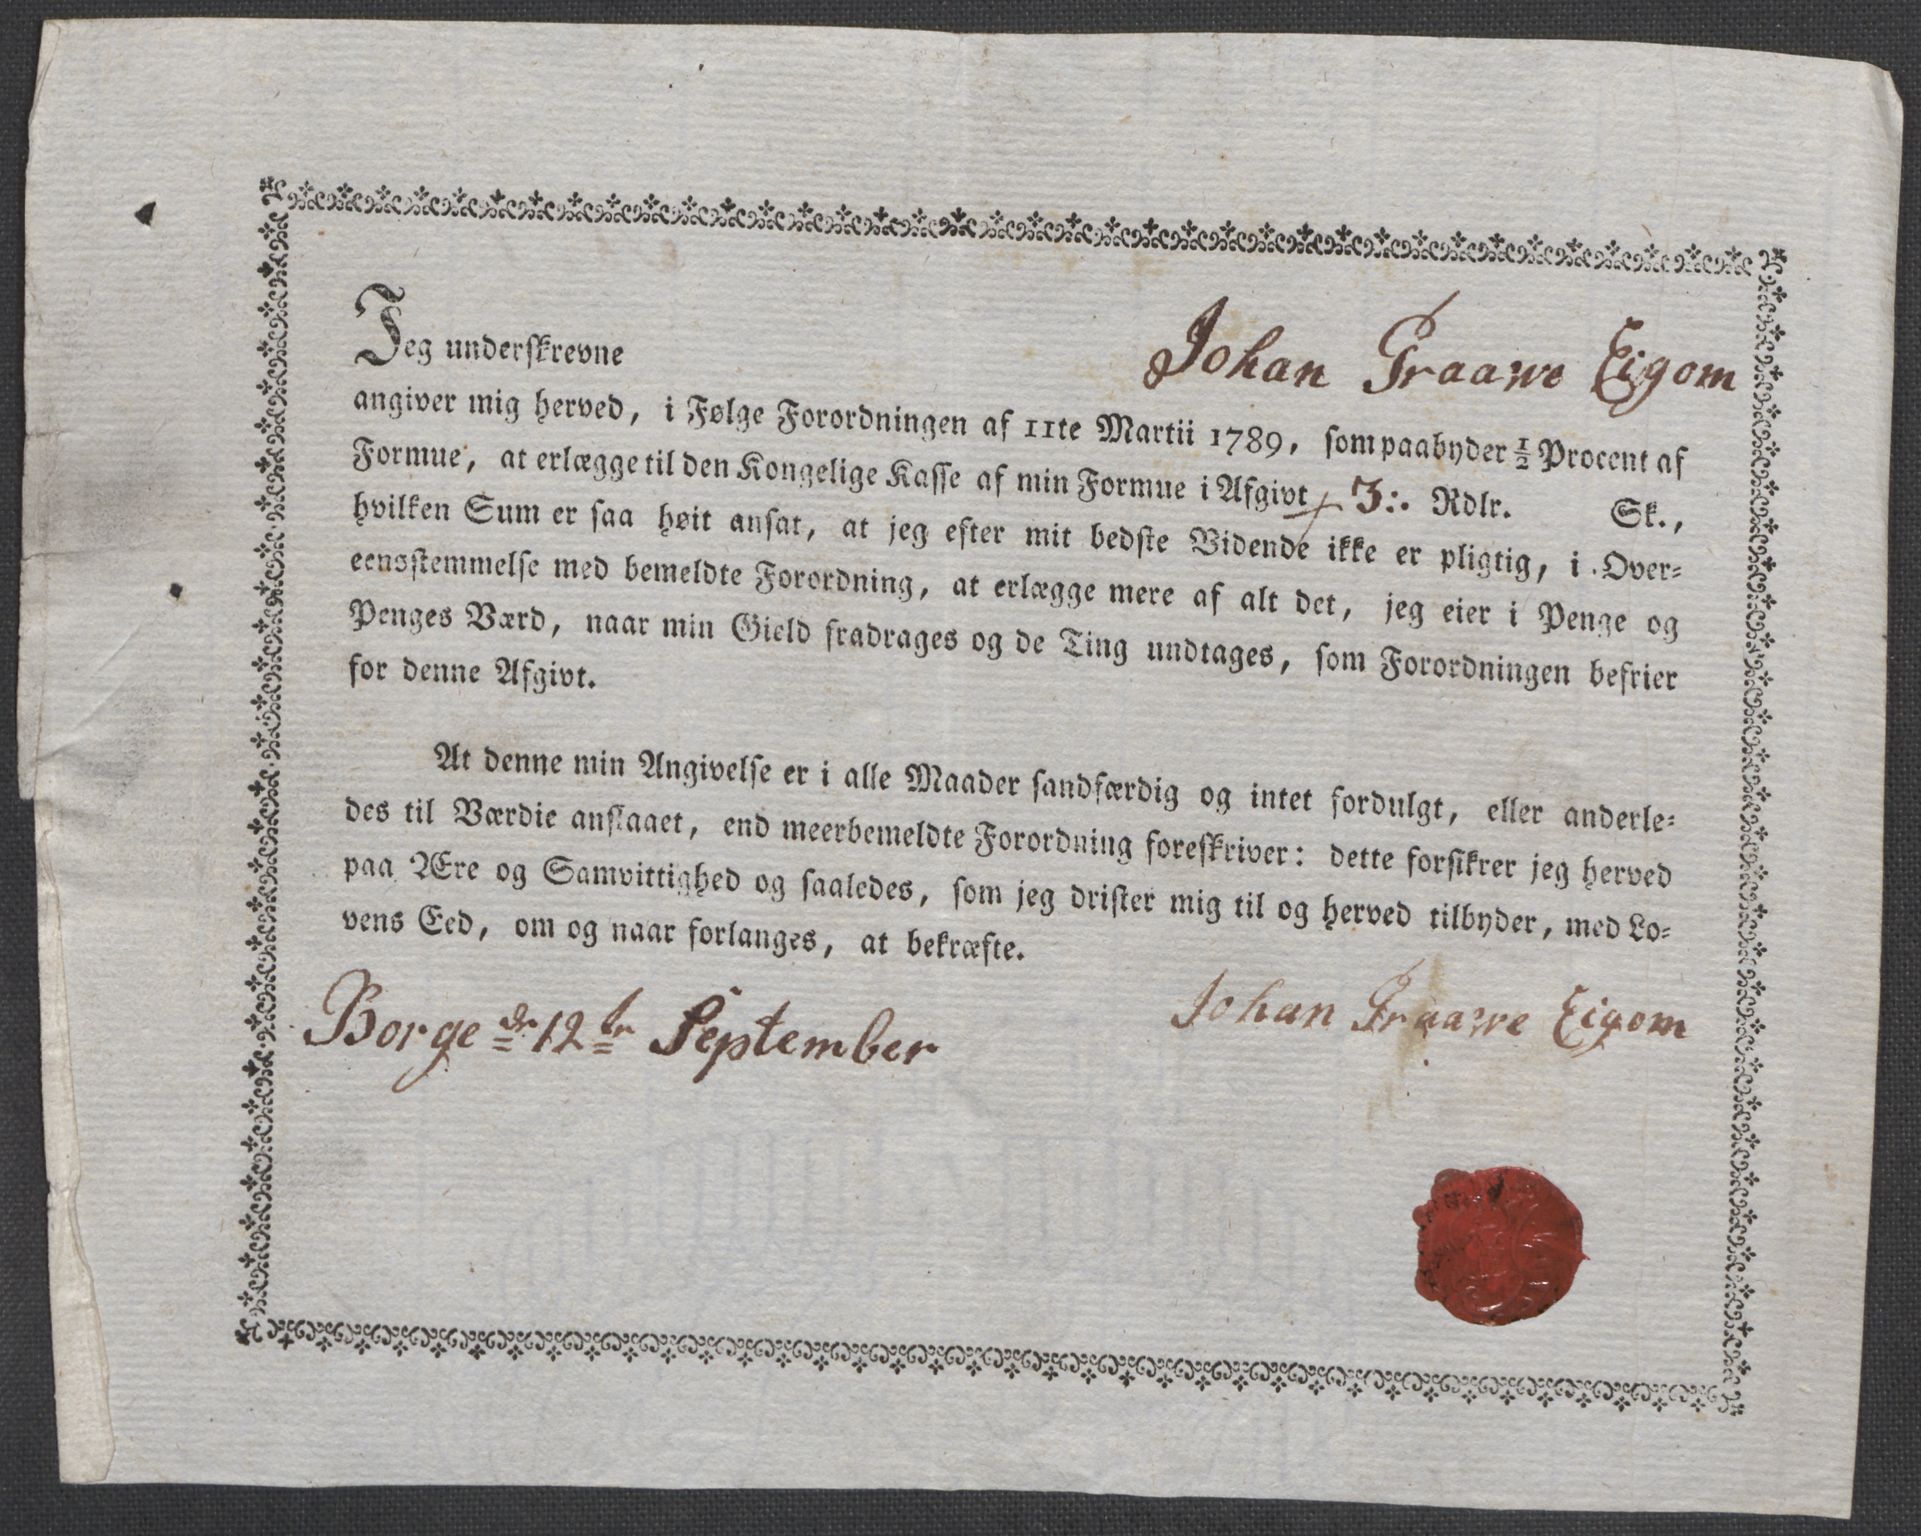 Jeg underskrevne Johan Praawe Eigom
angiver mig herved, i Følge Forordningen af 11te Martii 1789, som paabyder ½ Procent af
Formue, at erlægge til den Kongelige Kasse af min Formue i Afgivt 3:. Rdlr. Sk.,
hvilken Sum er saa høit ansat, at jeg efter mit bedste Vidende ikke er pligtig, i Over=
eensstemmelse med bemeldte Forordning, at erlægge mere af alt det, jeg eier i Penge og
Penges Værd, naar min Gield fradrages og de Ting undtages, som Forordningen befrier
for denne Afgivt.
At denne min Angivelse er i alle Maader sandfærdig og intet fordulgt, eller anderle=
des til Værdie anslaaet, end meerbemeldte Forordning foreskriver: dette forsikrer jeg herved
paa Ære og Samvittighed og saaledes, som jeg drister mig til og herved tilbyder, med Lo=
vens Eed, om og naar forlanges, at bekræfte.
Borge dn 12tr September
Johan Praawe Eigom